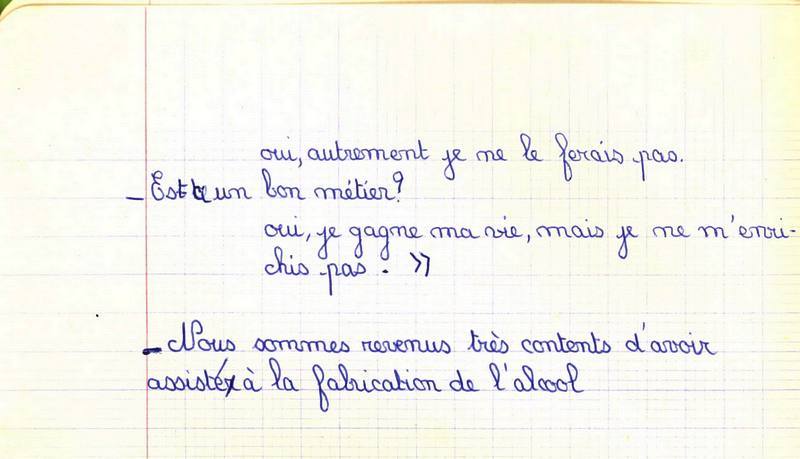 oui, autrement je ne le ferais pas.
_ Est ce un bon métier?
oui, je gagne ma vie, mais je ne m'enri-
chis pas. »
_ Nous sommes revenus très contents d'avoir
assisté à la fabrication de l'alcool